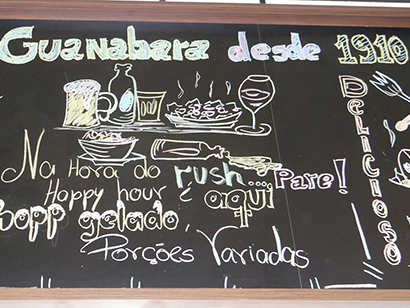 Guanabara desde 1910
DELICIOSO
Na Hora do rush... Pare!
Happy hour é aqui
hopp gelado,
Porções Variadas